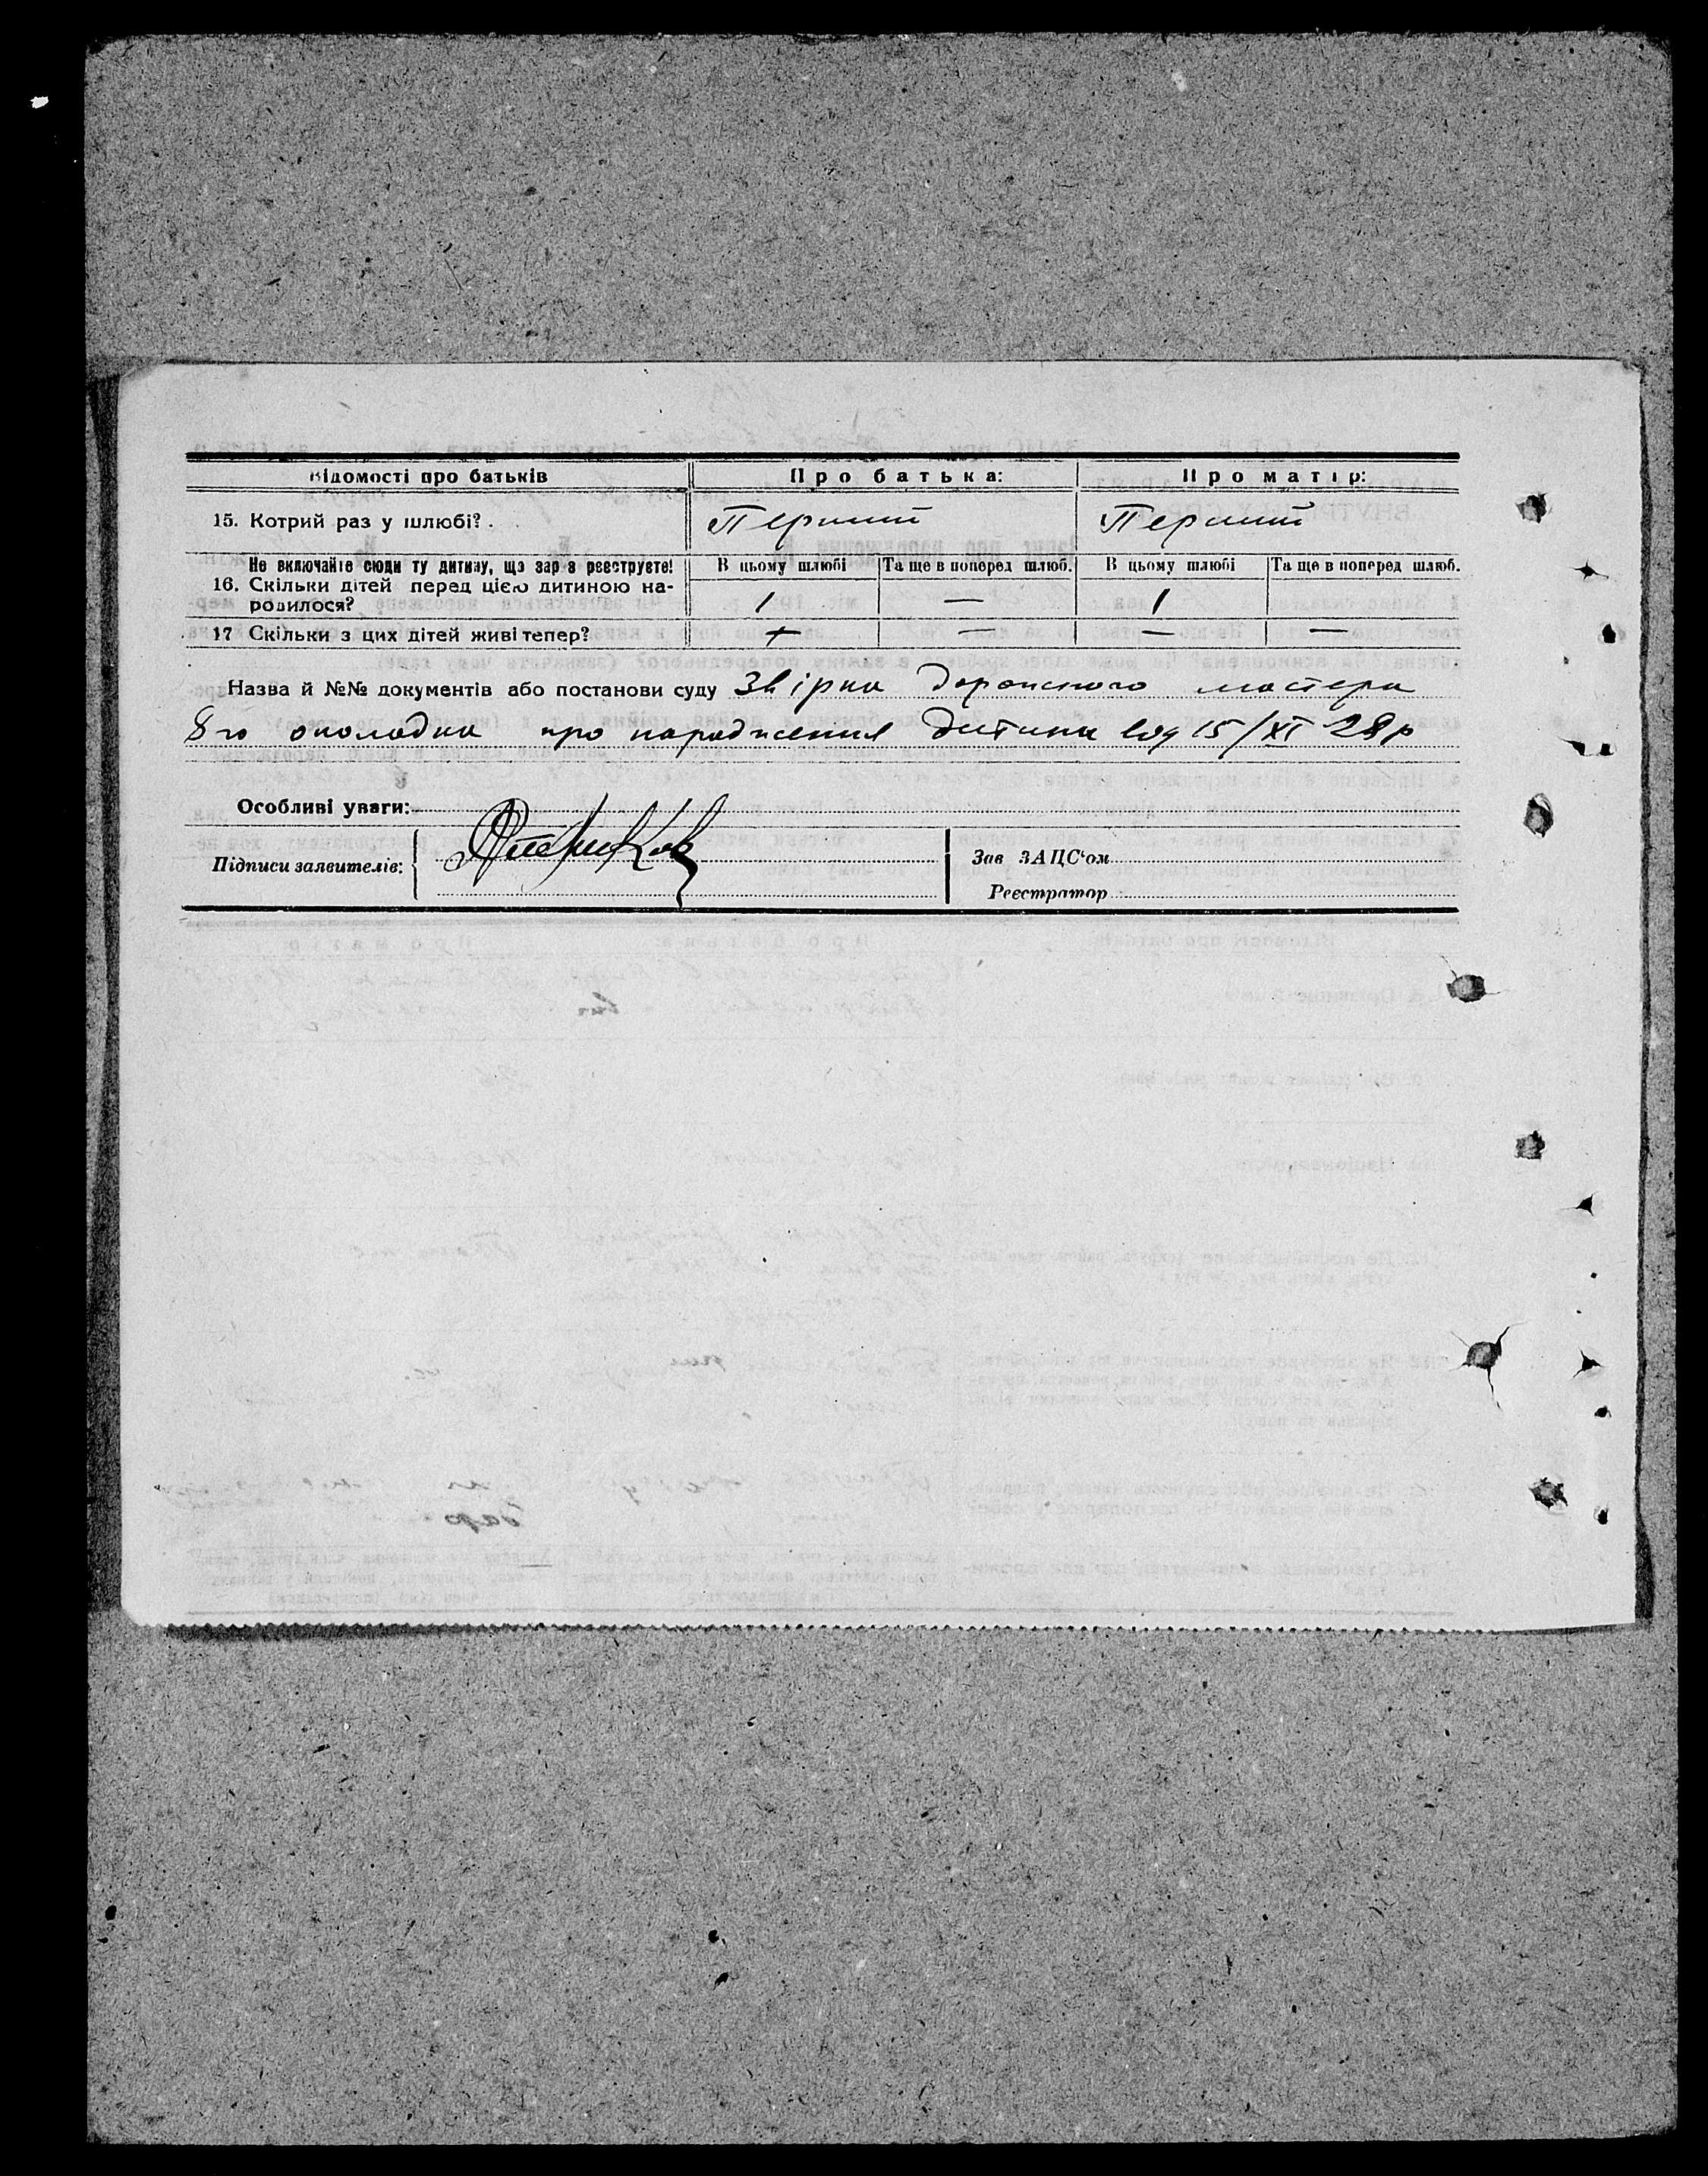 Відомості про батьків Про батька: Про матір:
15. Котрий раз у шлюбі? . Перший Перший
Не включайте сюди ту дитину, що зараз реєструєте! В цьому шлюбі Та ще в поперед шлюб. В цьому шлюбі Та ще в поперед шлюб.
16. Скільки дітей перед цією дитиною на-
родилося? 1 — 1
17 Скільки з цих дітей живі тепер? — — —
Назва й №№ документів або постанови суду Звірка дорожного мастера
8го околодка про народження дитини від 15/XI 28р
Особливі уваги:
Підписи заявителів:
Зав ЗАЦС‘ом
Реєстратор